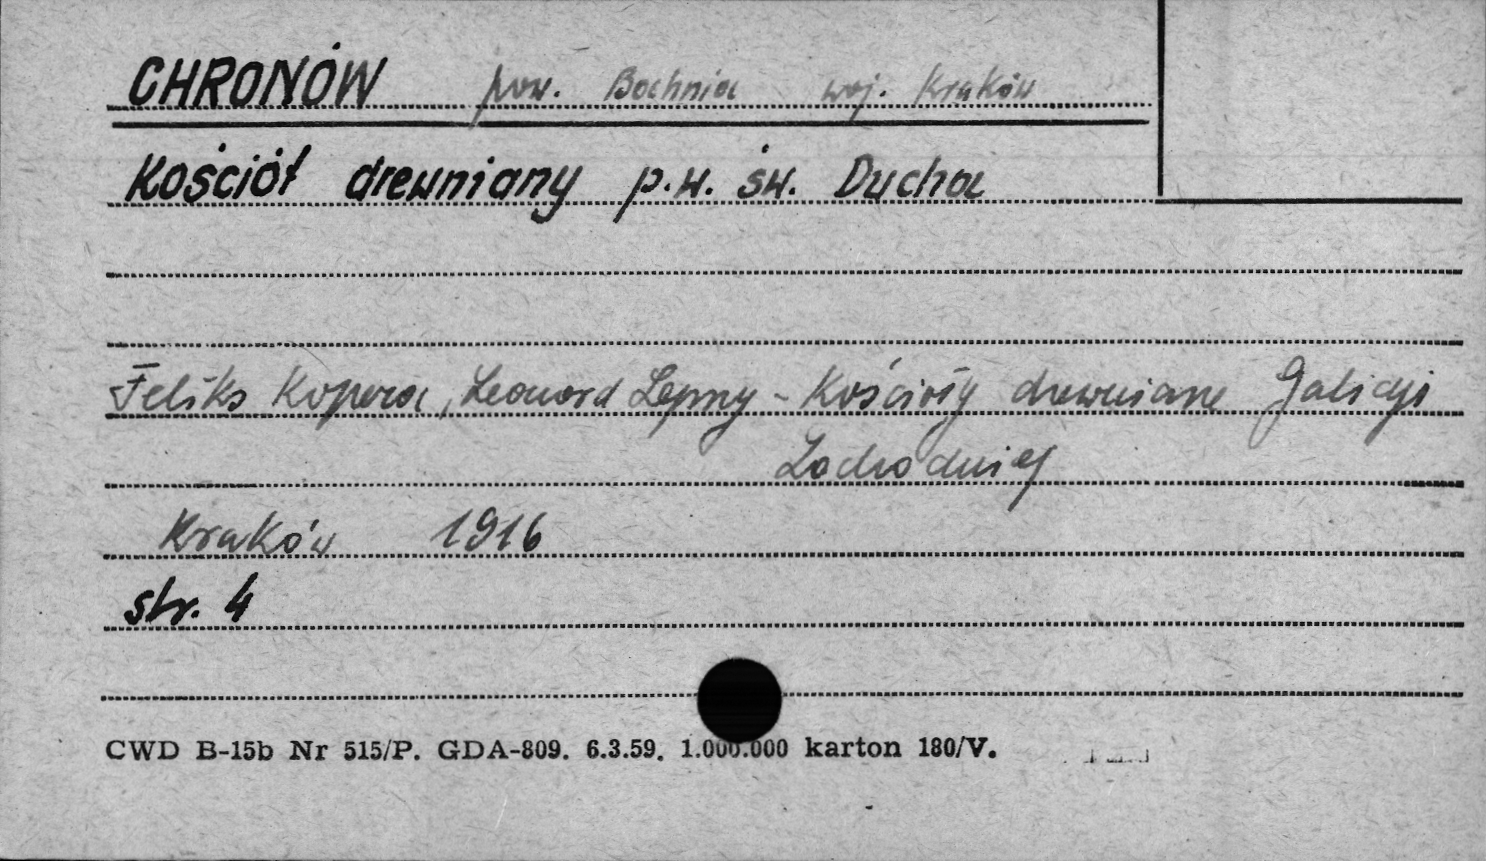 CHRONÓW pow. Bochnia woj. Kraków
Kościół drewniany p.w. św. Ducha
Feliks Kopera, Leonard Lepszy - Kościoły drewniane Galicyi
Zachodniej
Kraków 1916
str. 4
CWD B-15b Nr 515/P. GDA-809. 6.3.59. 1.000.000 karton 180/V.